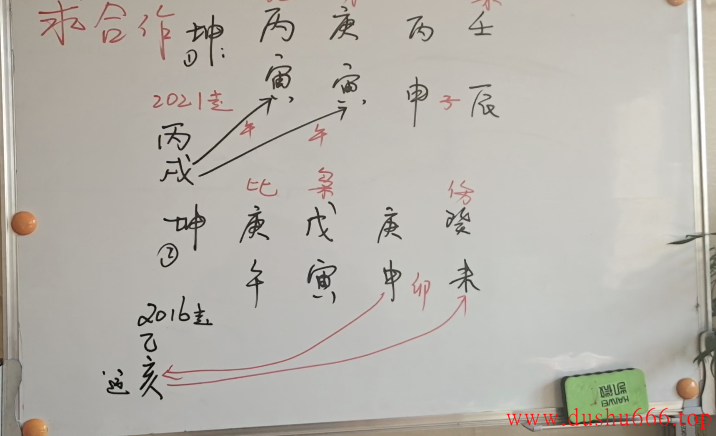 求合作 坤: 丙 庚 丙 壬
①
寅 寅 申 子 辰
2021走
午 午
丙
戌
比 枭 伤
坤 庚 戊 庚 癸
②
午 寅 申 卯 未
2016走
乙
运 亥
HAIWEN
www.dushu666.top